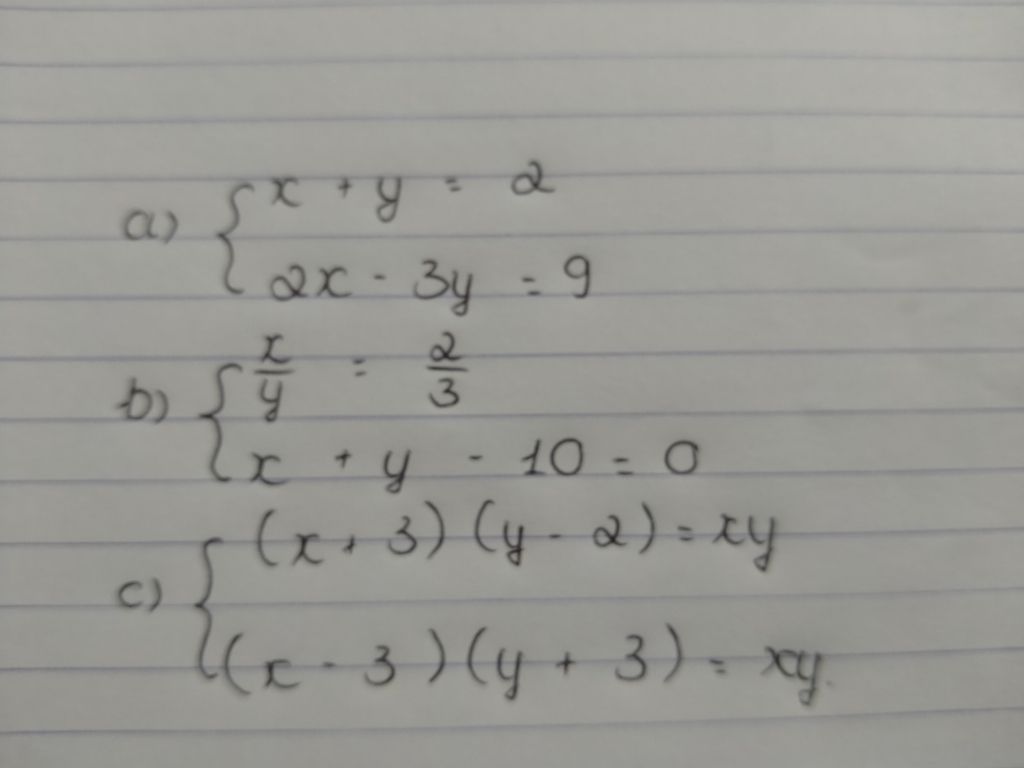 a) { x + y = 2
2x - 3y = 9
b) { x/y = 2/3
x + y - 10 = 0
c) { (x + 3) (y - 2) = xy
(x - 3) (y + 3) = xy.